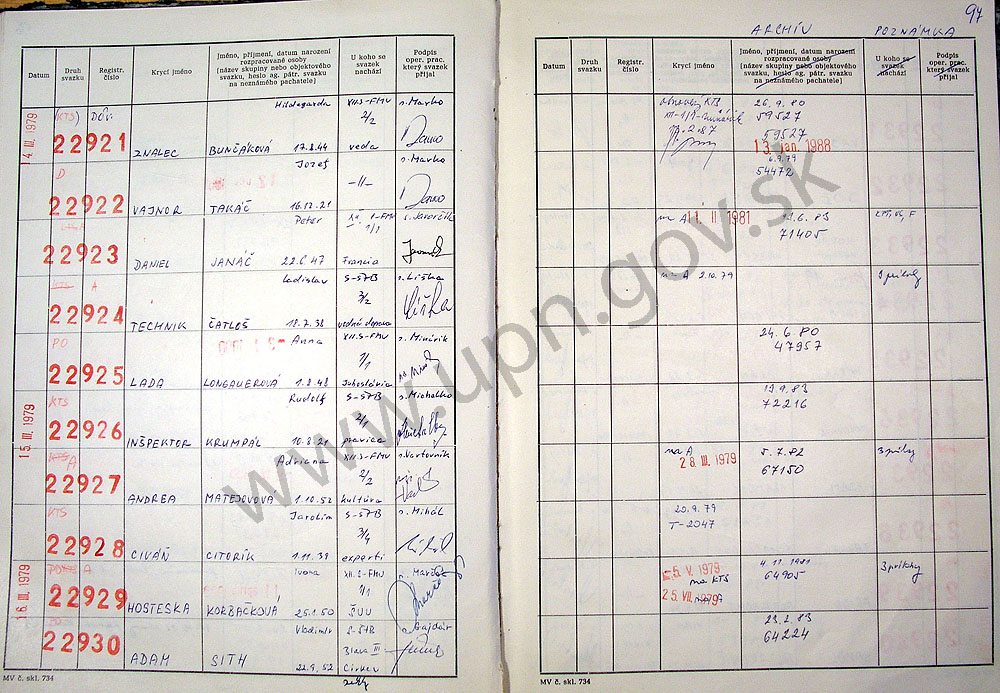 97
ARCHÍV POZNÁMKA
Datum
Druh svazku
Registr. číslo
Krycí jméno
Jméno, příjmení, datum narození
rozpracované osoby
(název skupiny nebo objektového
svazku, heslo ag. pátr. svazku
na neznámého pachatele)
U koho se
svazek
nachází
Podpis
oper. prac.
který svazek
přijal
14 III. 1979
KTS) DŮV.
Hildegarda XII.S-FMV s. Marko
22921 ZNALEC BUNČÁKOVÁ 17.8.44 2/2 veda
D
Jozef s. Marko
22922 VAJNOR TAKÁČ 16.12.21 -II-
Peter s. Javorčík
22923 DANIEL JANÁČ 22.6.47 1/1 Francia
KTS A
Ladislav S-ŠTB s. Liška
22924 TECHNIK ČATLOŠ 18.7.38 3/2
PO
Anna XII.S-FMV s. Minárik
22925 LADA LONGAUEROVÁ 1.8.48 1/1 Juhoslávia
15. III. 1979
KTS
Rudolf S-ŠTB s. Michalko
22926 INŠPEKTOR KRUMPÁL 2/1 pravica
KTS A
Adriana XII.S-FMV s. Vartovník
22927 ANDREA MATEJOVOVÁ 1.10.52 2/2 kultúra
KTS
Jarolím S-ŠTB s. Mihál
22928 CIVÁŇ CITORÍK 1.11.39 3/4 experti
16. III. 1979
Ivona XII.S-FMV
22929 HOSTESKA KORBAČKOVÁ 25.1.50 1/1 ŠUU
Vladimír S-ŠTB s. Gajdár
22930 ADAM SITH 22.9.52 Blava III Cirkev
MV č. skl. 734
Datum
Druh svazku
Registr. číslo
Krycí jméno
Jméno, příjmení, datum narození
rozpracované osoby
(název skupiny nebo objektového
svazku, heslo ag. pátr. svazku
na neznámého pachatele)
U koho se
svazek
nachází
Podpis
oper. prac.
který svazek
přijal
26.9.80
59527
59527
13. jan. 1988
6.9.79
54472
na A 11 II 1981
19.6.83
71405
na A 2.10.79
3 príkohy
24.6.80
47957
19.9.83
72216
na A 28 III. 1979
5.7.82
67150
3 príkohy
20.9.79
T-2047
-5. V. 1979
na KTS
25. VII. 1979
4.11.1981
64905
3 príkohy
23.2.83
64224
MV č. skl. 734
www.upn.gov.sk